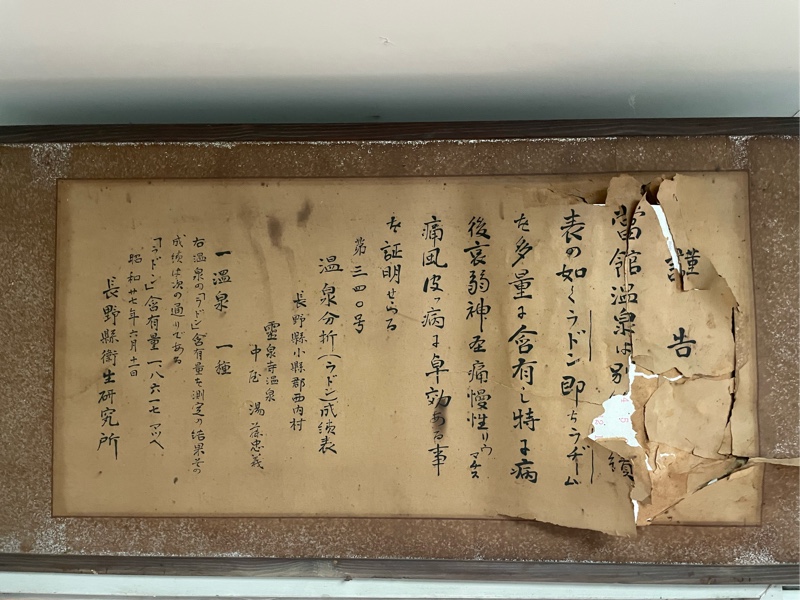 謹告
當館温泉は別 績
表の如くラドン即ちラヂーム
を多量に含有し特に病
後衰弱神経痛慢性リウマチス
痛風皮フ病に卓効ある事
を証明せらる
第三四〇号
温泉分折(ラドン)成績表
長野縣小縣郡西内村
霊泉寺温泉
中屋 湯 忠義
一温泉 一種
右温泉の「ラドン」含有量を測定の結果その
成績は次の通りである
「ラドン」含有量 一八六一七マツヘ
昭和廿七年六月十一日
長野縣衛生研究所